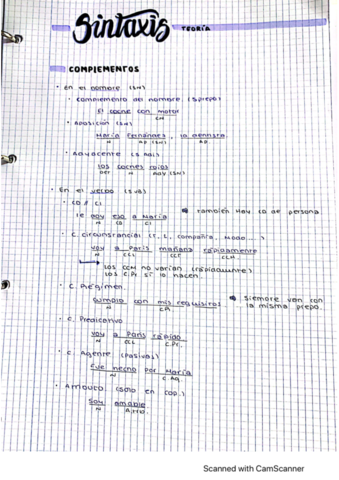 Sintaxis TEORÍA
COMPLEMENTOS
· En el nombre (SN)
· Complemento del nombre (SPrepo)
El coche con motor
N CN
· Aposición (SN)
María Fernández, la tennista
N AP (SN) AP
· Adyacente (S Adj)
Los coches rojos
Det N ADY (SN)
· En el verbo (SVB)
· CD // CI
le doy eso a María
N CD CI
También hay CD de persona
· C. Circunstancial (T, L, compañía, modo ...)
Voy a París mañana rápidamente
N CCL CCT CCM
Los CCM no varían (rápidamente)
Los C.Pr sí lo hacen.
· C. Régimen.
Cumplo con mis requisitos
N CR
Siempre van con
la misma prepo.
· C. Predicativo
Voy a París rápido
N CCL C.Pr.
· C. Agente (Pasivas)
Fue hecho por María
N C.Ag.
· Atributo (solo en cop.)
Soy amable
N Atrib.
Scanned with CamScanner